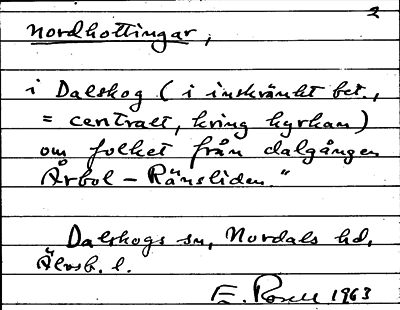 2
nordhottingar,
i Dalskog (i inskränkt bet.,
= centralt, kring kyrkan)
om folket från dalgången
Årbol - Ränsliden."
Dalskogs sn, Nordals hd,
Älvsb. l.
E. Rosell 1963